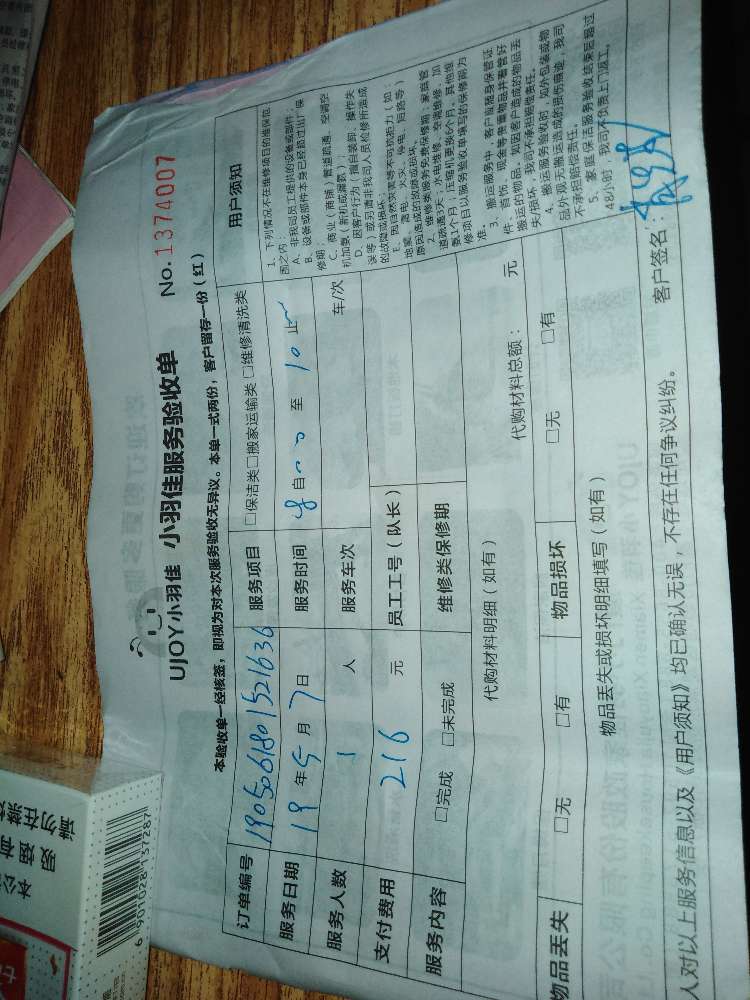 UJOY小羽佳 小羽佳服务验收单 No. 1374007
本验收单一经核签，即视为对本次服务验收无异议。本单一式两份，客户留存一份（红）
订单编号 190506180152163 服务项目 □保洁类□搬家运输类 □维修清洗类
服务日期 19年5月7日 服务时间 自 至
服务人数 1 人 服务车次 车/次
支付费用 216 元 员工工号（队长）
服务内容 □完成 □未完成 维修类保修期
代购材料明细（如有） 代购材料总额： 元
物品丢失 □无 □有 物品损坏 □无 □有
物品丢失或损坏明细填写（如有）
人对以上服务信息以及《用户须知》均已确认无误，不存在任何争议纠纷。 客户签名：
用户须知
1、下列情况不在维修项目的维保范
围之内：
A、非我司员工提供的设备或部件；
B、设备或部件本身已经超过出厂保
修期
C、商业（商铺）管道疏通、空调空
机加氨（新机或漏氨）；
D、因客户行为（擅自装卸、操作失
误等）或另请非我司人员检修所造成
的故障或损坏；
E、因自然灾害等不可抗拒力（如：
地震、雷电、火灾、停电、短路等）
原因造成的故障或损坏。
2、维修类服务免费保修期：家庭管
道疏通3天；水电维修、空调维修、加
氨1个月；压缩机更换6个月，其他维
修项目以服务验收单填写的保修期为
准。
3、搬运服务中，客户应随身保管证
件、首饰、现金等贵重物品并看管好
搬运的物品，如因客户造成的物品丢
失/损坏，我司不承担赔偿责任。
4、搬运服务验收时，如外包装或物
品外观无搬运造成的损伤痕迹，我司
不承担赔偿责任。
5、家庭保洁服务验收结束后超过
48小时，我司不负责上门返工。
请勿在
6 901028 137287